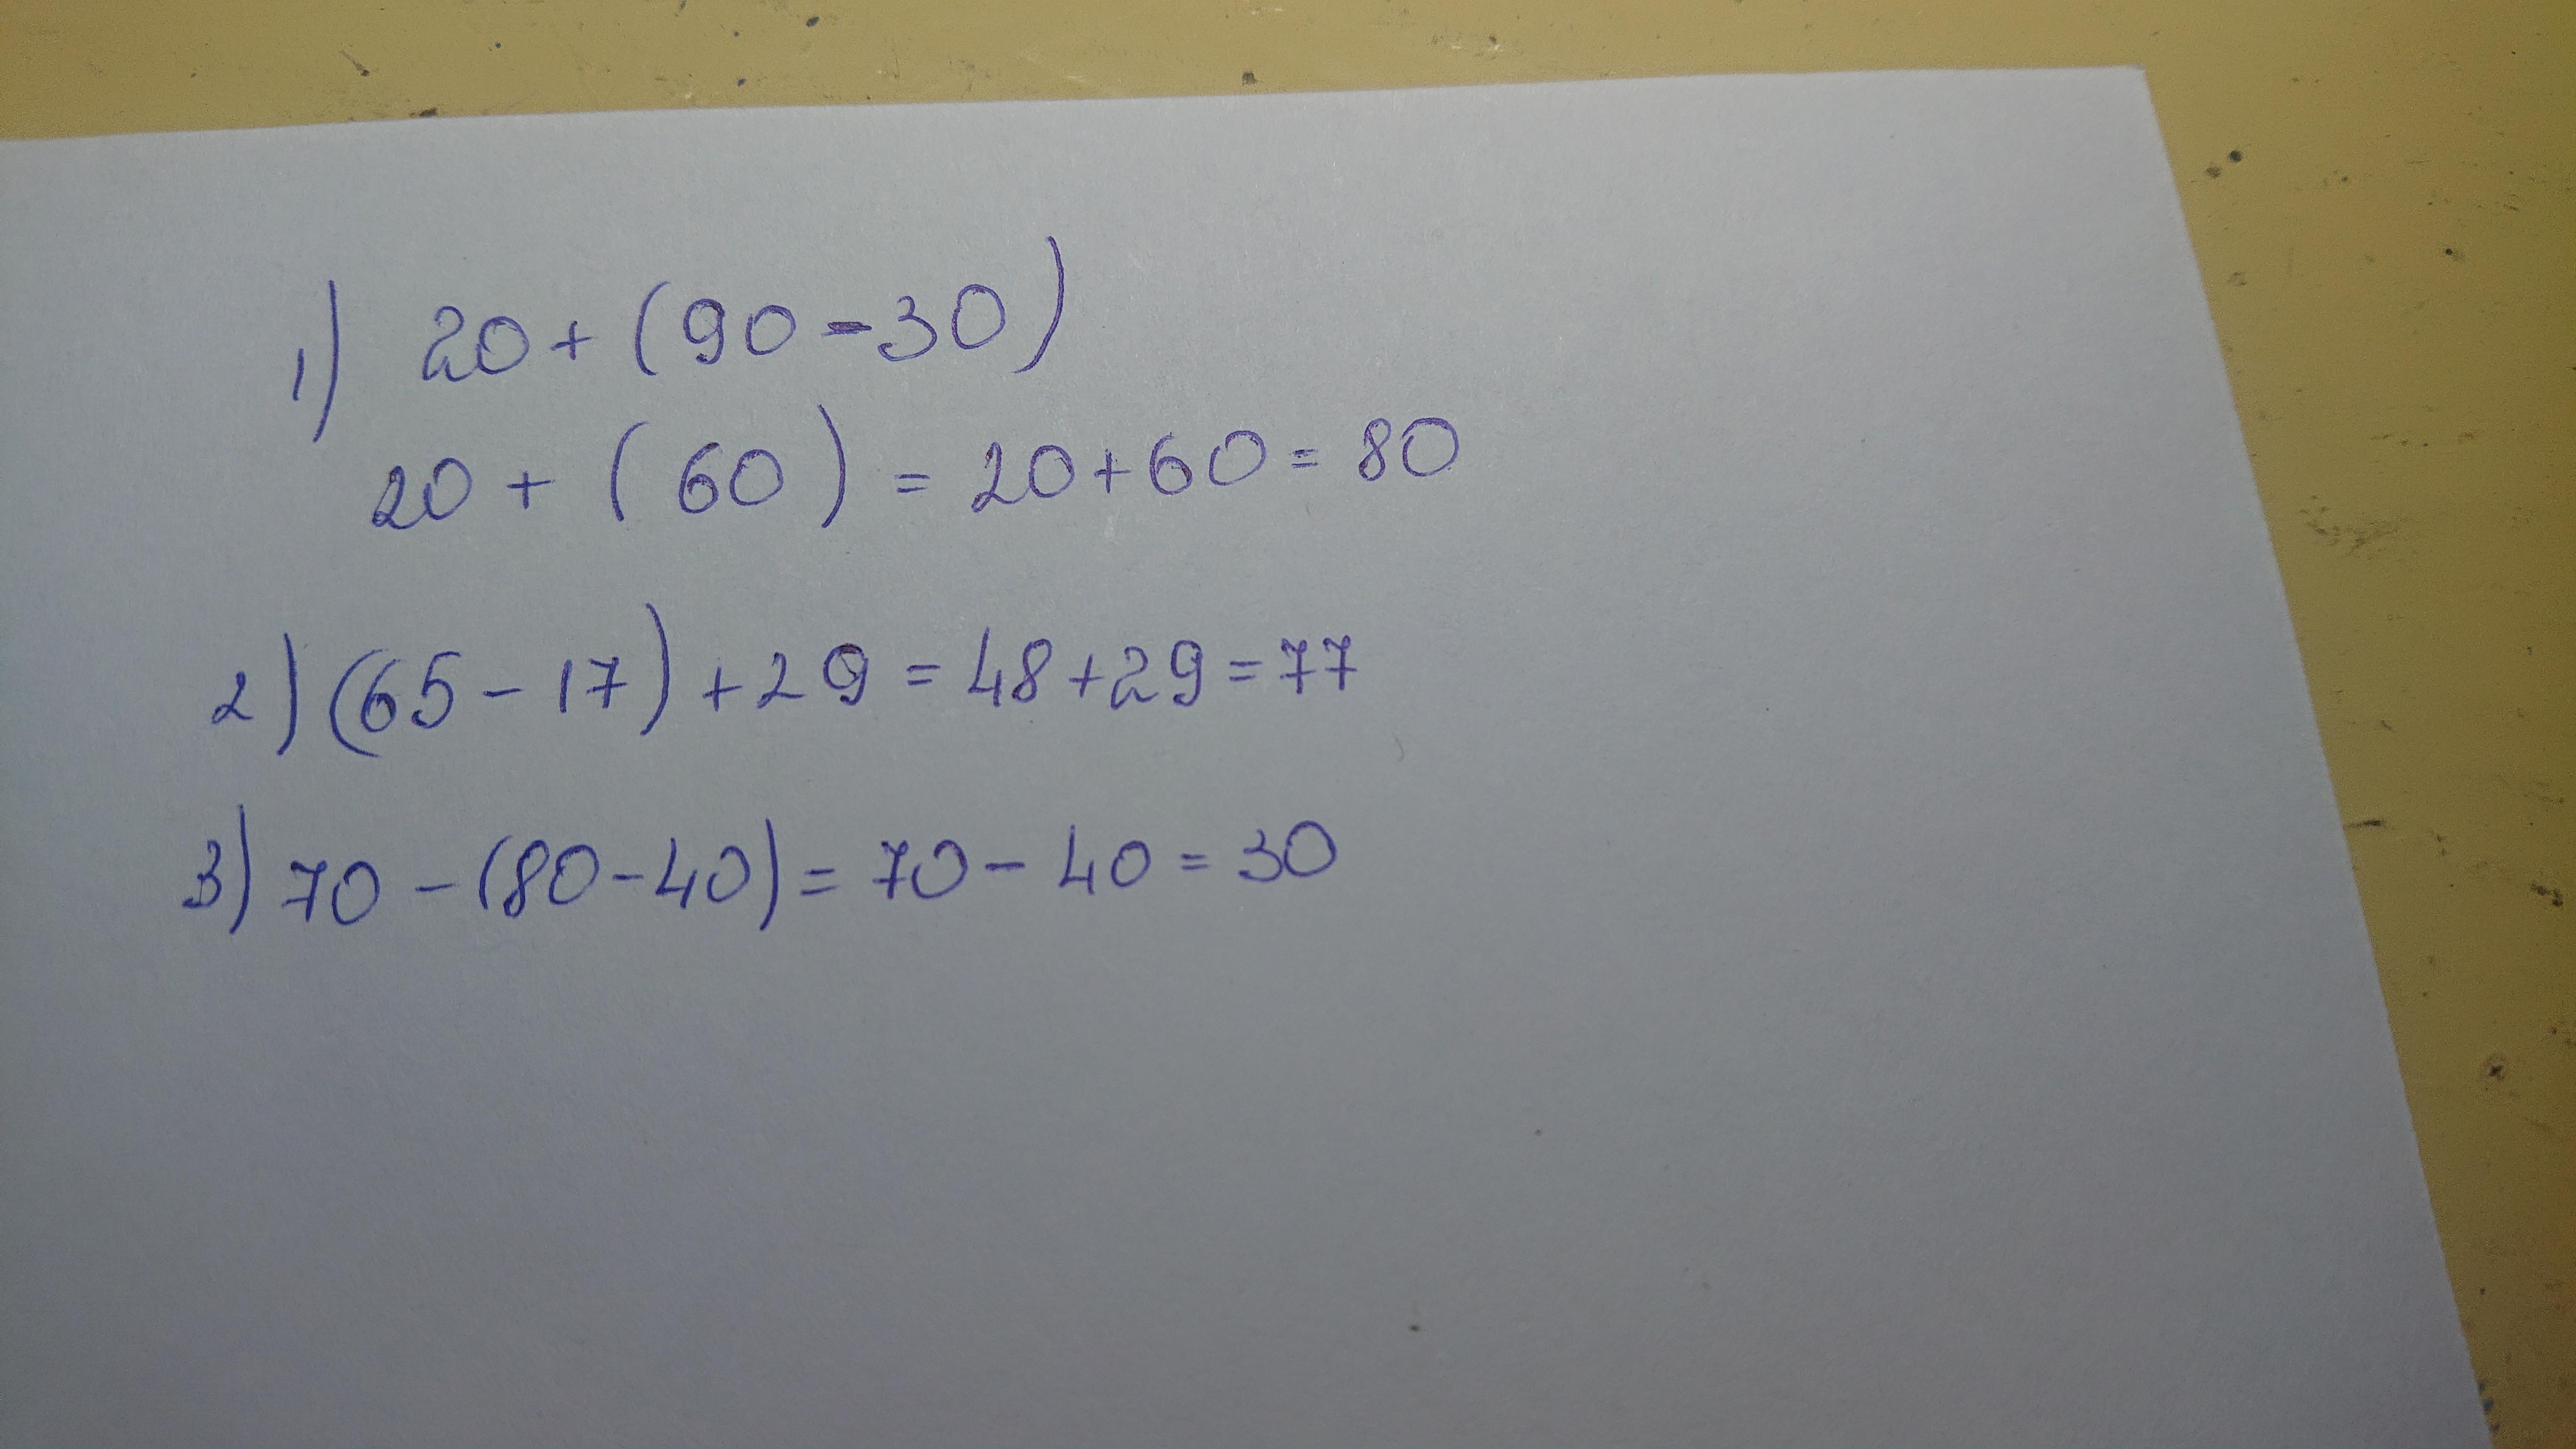 1) 20+(90-30)
20+(60)=20+60=80
2) (65-17)+29=48+29=77
3) 70-(80-40)=70-40=30